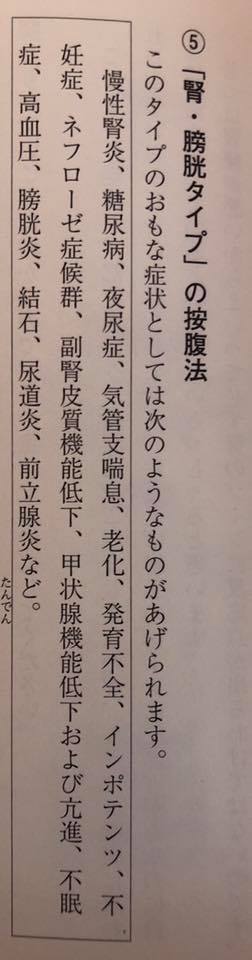 ⑤「腎・膀胱タイプ」の按腹法
このタイプのおもな症状としては次のようなものがあげられます。
慢性腎炎、糖尿病、夜尿症、気管支喘息、老化、発育不全、インポテンツ、不
妊症、ネフローゼ症候群、副腎皮質機能低下、甲状腺機能低下および亢進、不眠
症、高血圧、膀胱炎、結石、尿道炎、前立腺炎など。
たんでん